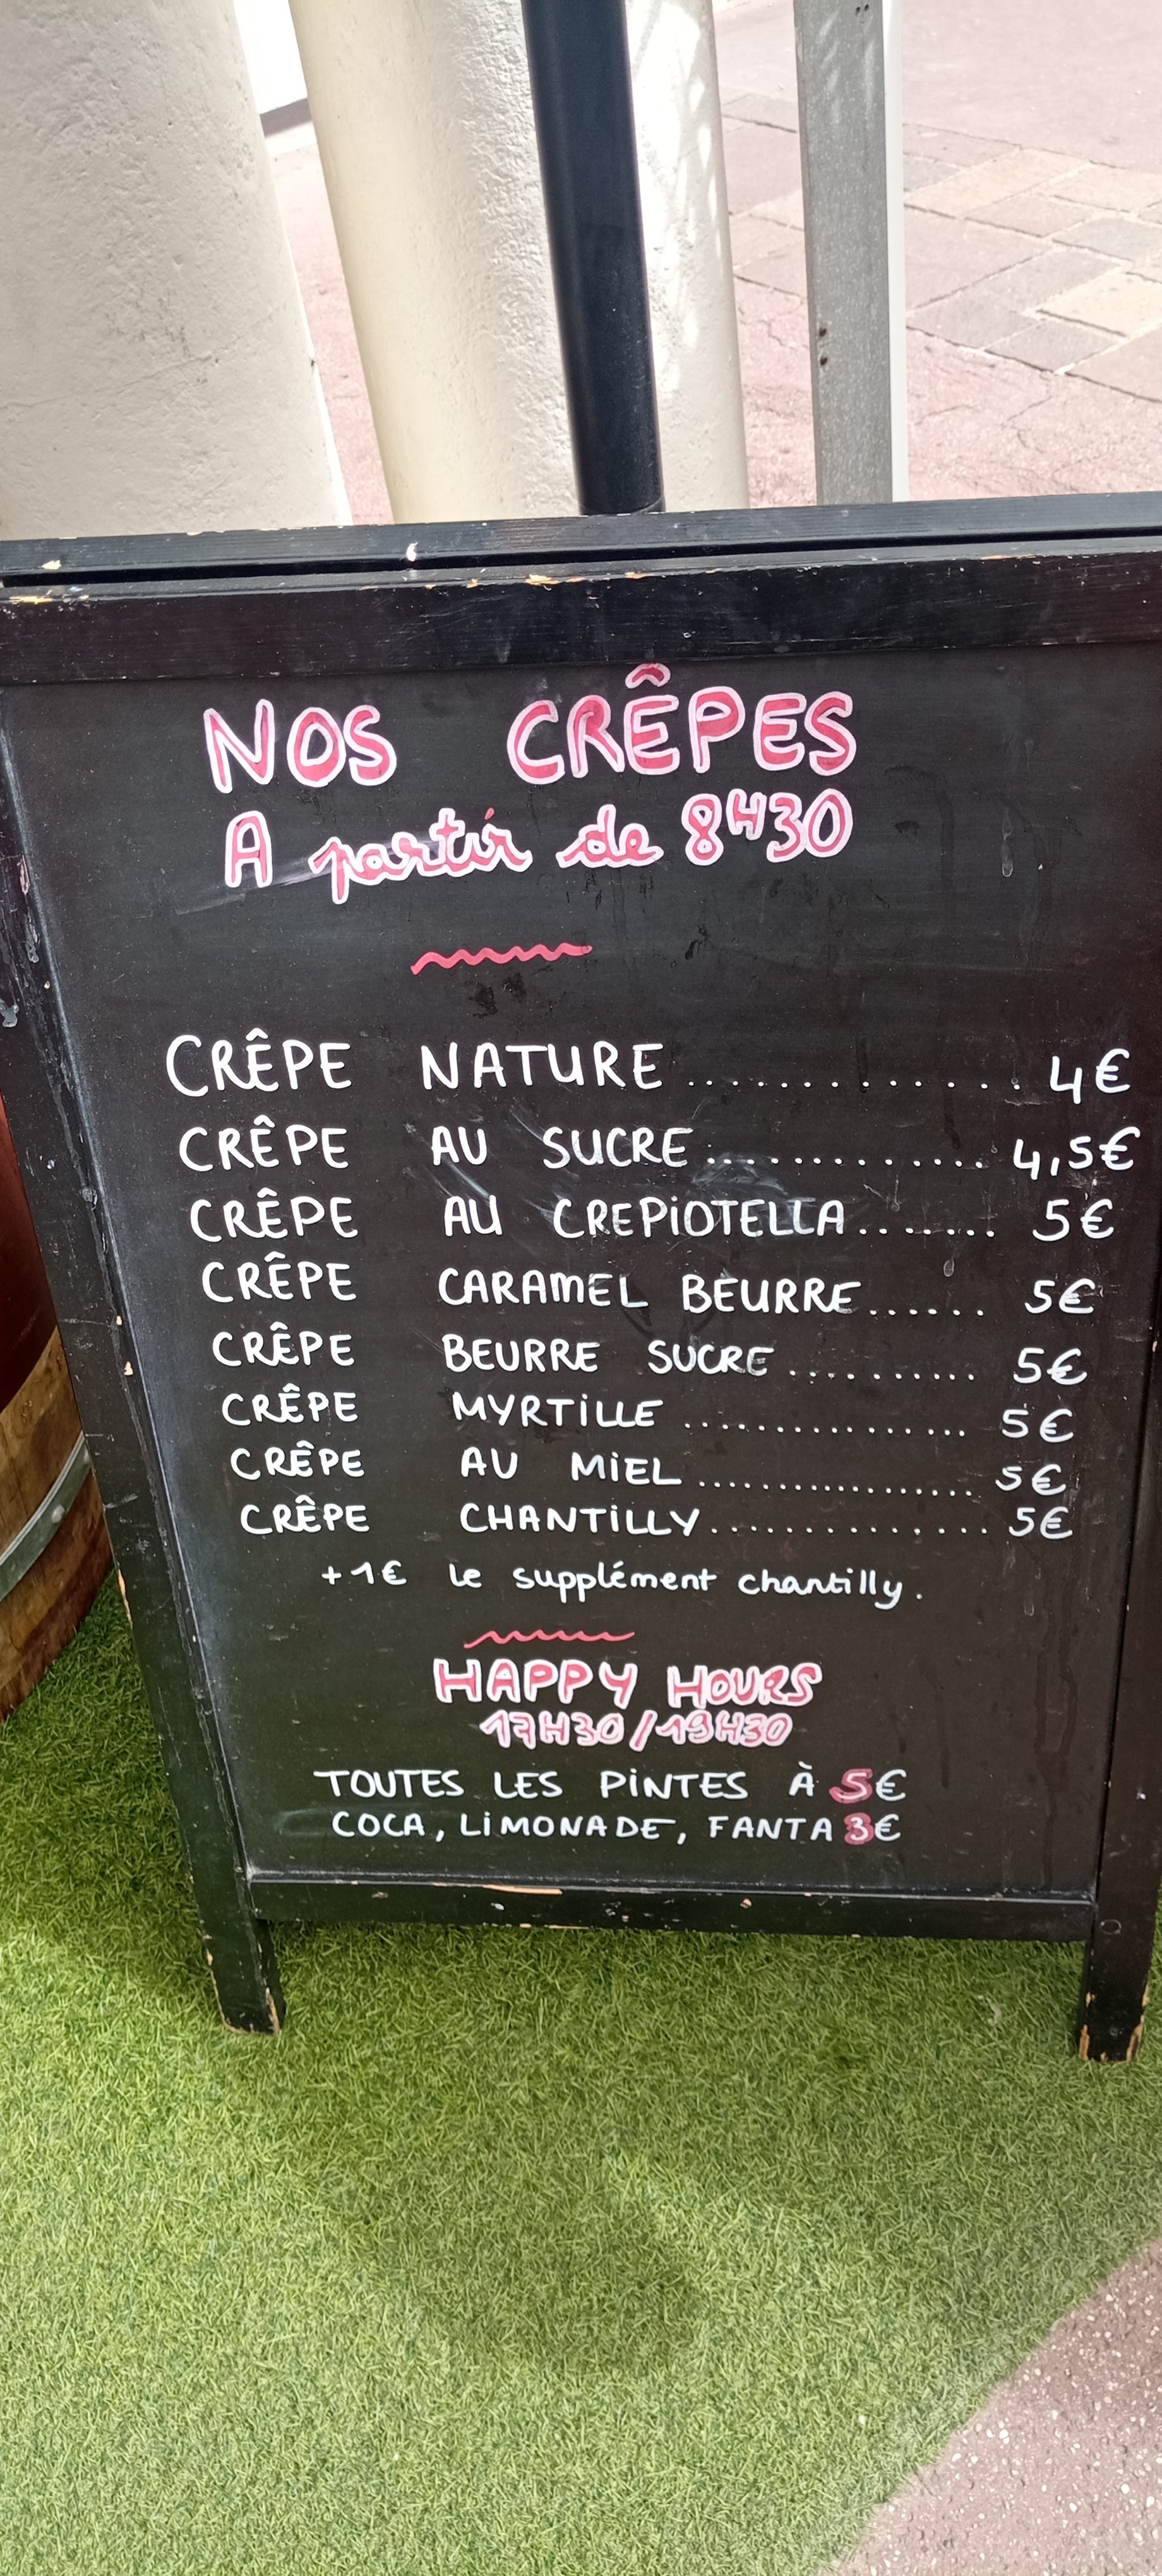 NOS CRÊPES
A partir de 8H30
CRÊPE NATURE.............. 4€
CRÊPE AU SUCRE............. 4,5€
CRÊPE AU CREPiOTELLA....... 5€
CRÊPE CARAMEL BEURRE...... 5€
CRÊPE BEURRE SUCRE.......... 5€
CRÊPE MYRTiLLE ............... 5€
CRÊPE AU MiEL .................. 5€
CRÊPE CHANTiLLY............... 5€
+1€ le supplément chantilly.
HAPPY HOURS
17H30/19H30
TOUTES LES PiNTES À 5€
COCA, LiMONADE, FANTA 3€